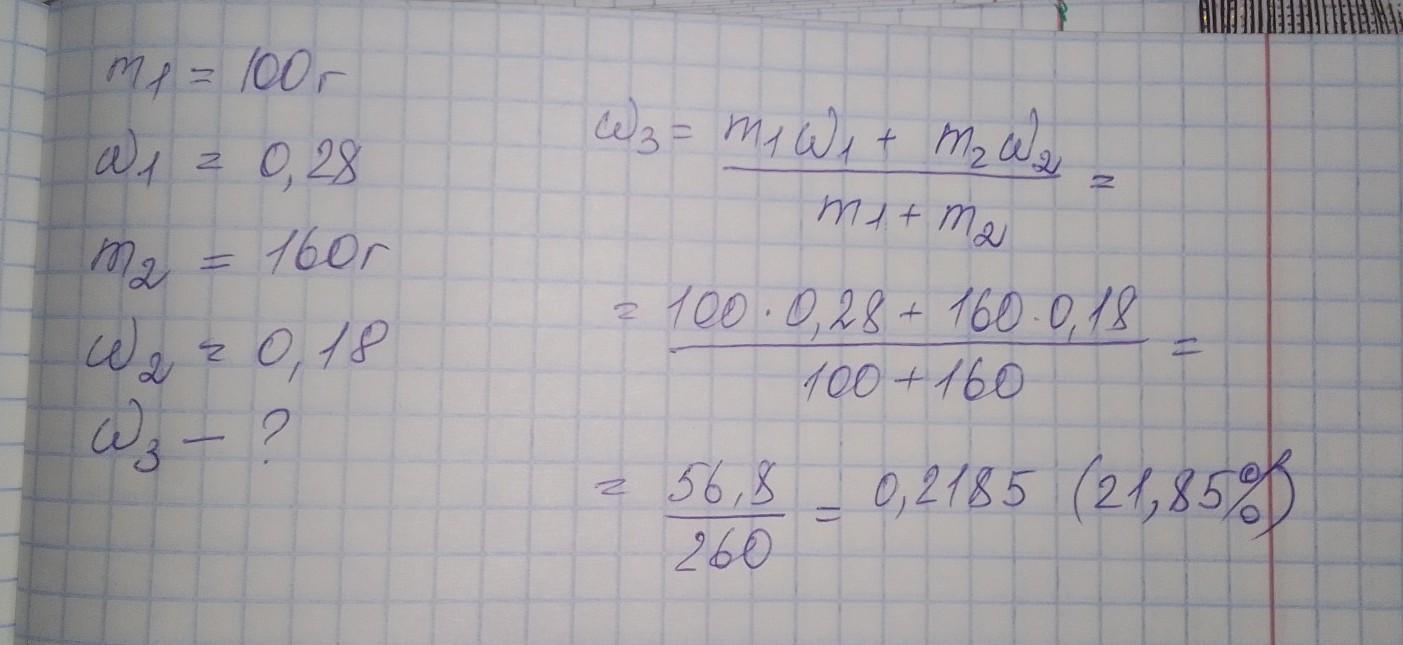 m1 = 100г
ω1 = 0,28
m2 = 160г
ω2 = 0,18
ω3 – ?
ω3 = m1ω1 + m2ω2 =
m1 + m2
= 100 · 0,28 + 160 · 0,18 =
100 + 160
= 56,8 = 0,2185 (21,85%)
260